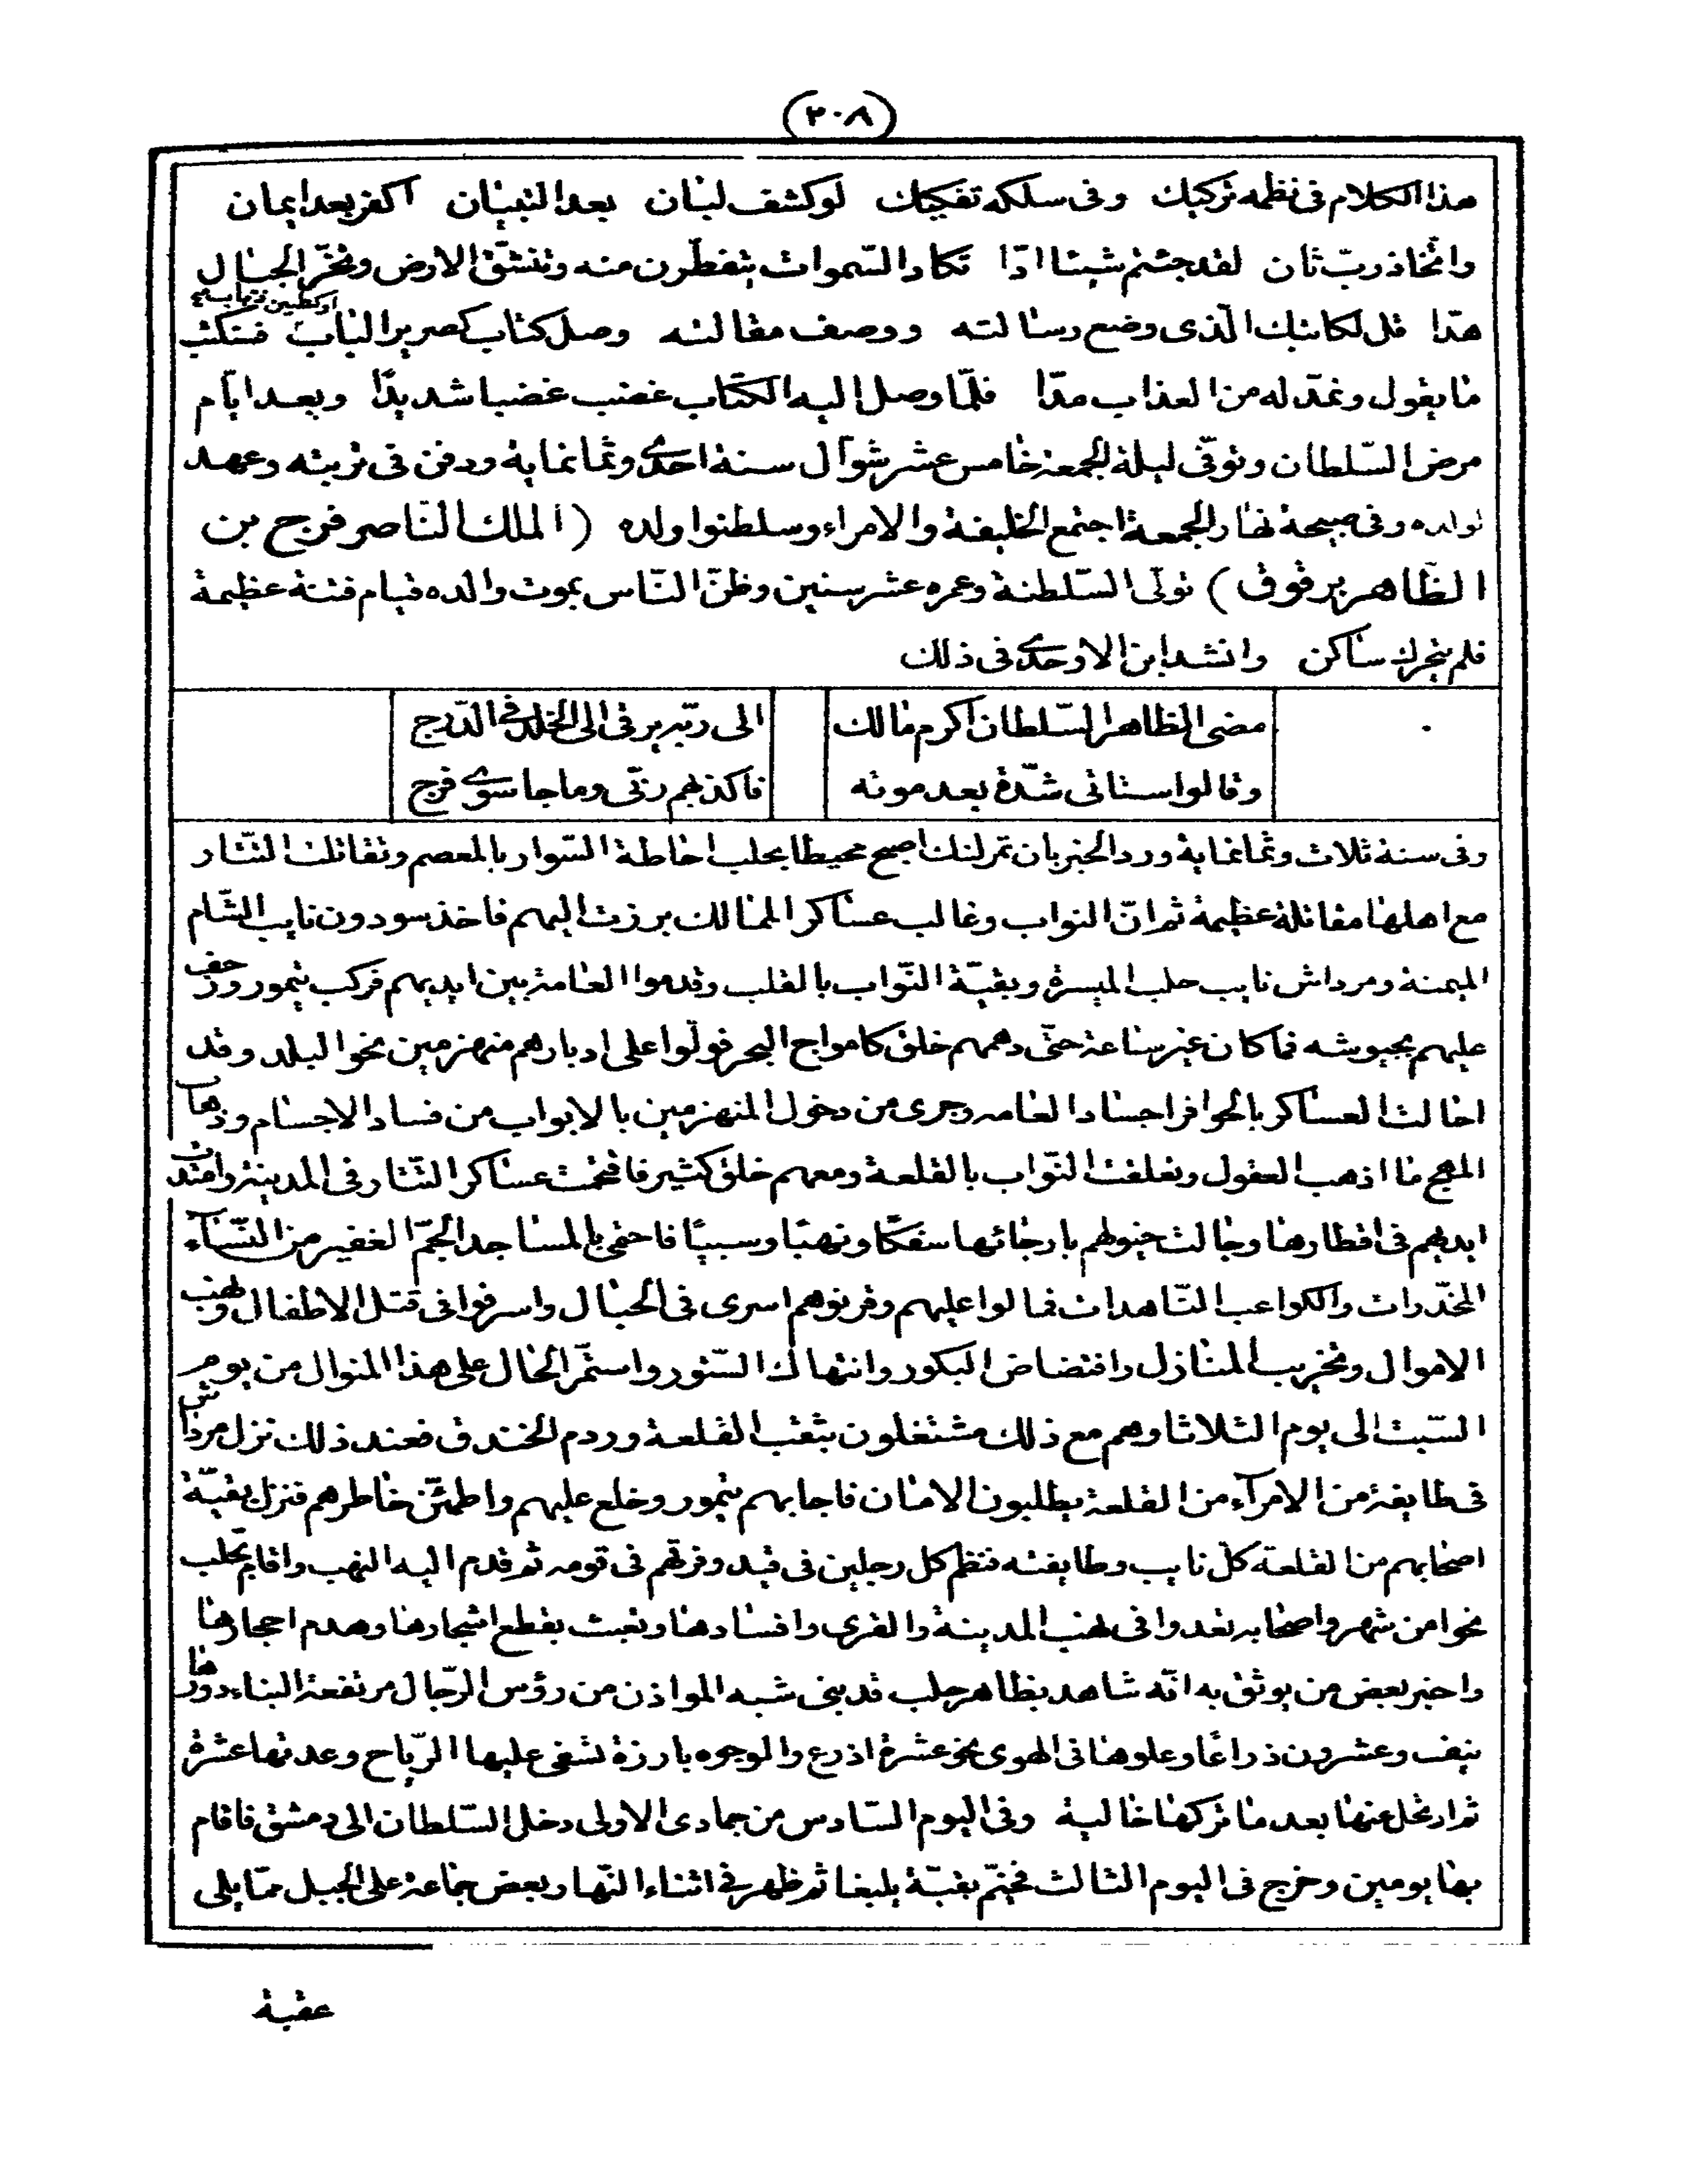 (٢٠٨)
هذا الكلام فى نظمه تركيك وفى سلكه تفكيك لو كشف لبان بعد التبيان اكفر بعد ايمان
واتخاذ ربّ ثان لقد جئتم شيئا ادّا تكاد السّموات يتفطّرن منه وتنشقّ الارض وتخرّ الجبال
هدّا قل لكاتبك الّذى وضع رسالته ووصف مقالته وصل كتاب كصرير الباب او كطنين ذباب سنكتب
ما يقول ونمدّ له من العذاب مدّا فلمّا وصل اليه الكتاب غضب غضبا شديدًا وبعد ايّام
مرض السّلطان وتوفّى ليلة الجمعة خامس عشر شوّال سنة احدى وثمانماية ودفن فى تربته وعهد
لولده وفى صبيحة نهار الجمعة اجتمع الخليفة والامراء وسلطنوا ولده (الملك النّاصر فرج بن
الظّاهر برقوق) تولّى السّلطنة وعمره عشر سنين وظنّ النّاس بموت والده قيام فتنة عظيمة
فلم يتحرك ساكن وانشد ابن الاوحدى فى ذلك
مضى الظاهر السّلطان اكرم مالك الى ربّه يرقى الى الخلد فى الدّرج
وقالوا ستاتى شدّة بعد موته فاكذبهم ربّى وما جا سوى فرج
وفى سنة ثلاث وثمانماية ورد الخبر بان تمرلنك اصبح محيطا بحلب احاطة السّوار بالمعصم وتقاتلت التتار
مع اهلها مقاتلة عظيمة ثم انّ النواب وغالب عساكر الممالك برزت اليهم فاخذ سودون نايب الشّام
الميمنة ومرداش نايب حلب الميسرة وبقيّة النّواب بالقلب وقدموا العامة بين ايديهم فركب تيمور وزحف
عليهم بجيوشه فما كان غير ساعة حتّى دهمهم خلق كامواج البحر فولّوا على ادبارهم منهزمين نحو البلد وقد
احالت العساكر بالحوافر اجساد العامه وجرى من دخول المنهزمين بالابواب من فساد الاجسام وذهاب
المهج ما اذهب العقول وتعلقت النّواب بالقلعة ومعهم خلق كثير فاقتحمت عساكر التّتار فى المدينة وامتدت
ايديهم فى اقطارها وجالت خيولهم بارجائها سفكًا ونهبًا وسبيًا فاحتمى بالمساجد الجمّ الغفير من النّسآء
المخدّرات والكواعب النّاهدات فمالوا عليهم وقرنوهم اسرى فى الحبال واسرفوا فى قتل الاطفال ونهب
الاموال وتخريب المنازل وافتضاض البكور وانتهاك السّتور واستمرّ الحال على هذا المنوال من يوم
السّبت الى يوم الثلاثا وهم مع ذلك مشتغلون بنقب القلعة وردم الخندق فعند ذلك نزل مرداش
فى طايفة من الامرآء من القلعة يطلبون الامان فاجابهم تيمور وخلع عليهم واطمئنّ خاطرهم فنزل بقيّة
اصحابهم من القلعة كلّ نايب وطايفته فنظم كل رجلين فى قيد وفرّقهم فى قومه ثم قدم اليه النهب واقام بحلب
نحوا من شهر واصحابه تغدوا فى نهب المدينة والقرى وافسادها وتعبث بقطع اشجارها وهدم احجارها
واخبر بعض من يوثق به انّه شاهد بظاهر حلب قد بنى شبه المواذن من رؤس الرّجال مرتفعة البناء دورها
نيف وعشرون ذراعًا وعلوها فى الهوى نحو عشرة اذرع والوجوه بارزة تسفى عليها الرّياح وعدتها عشرة
ثم ارتحل عنها بعد ما تركها خالية وفى اليوم السّادس من جمادى الاولى دخل السّلطان الى دمشق فاقام
بها يومين وخرج فى اليوم الثالث فخيّم بقبّة يلبغا ثم ظهر فى اثناء النّهار بعض جماعة على الجبل ممّا يلى
عقبة